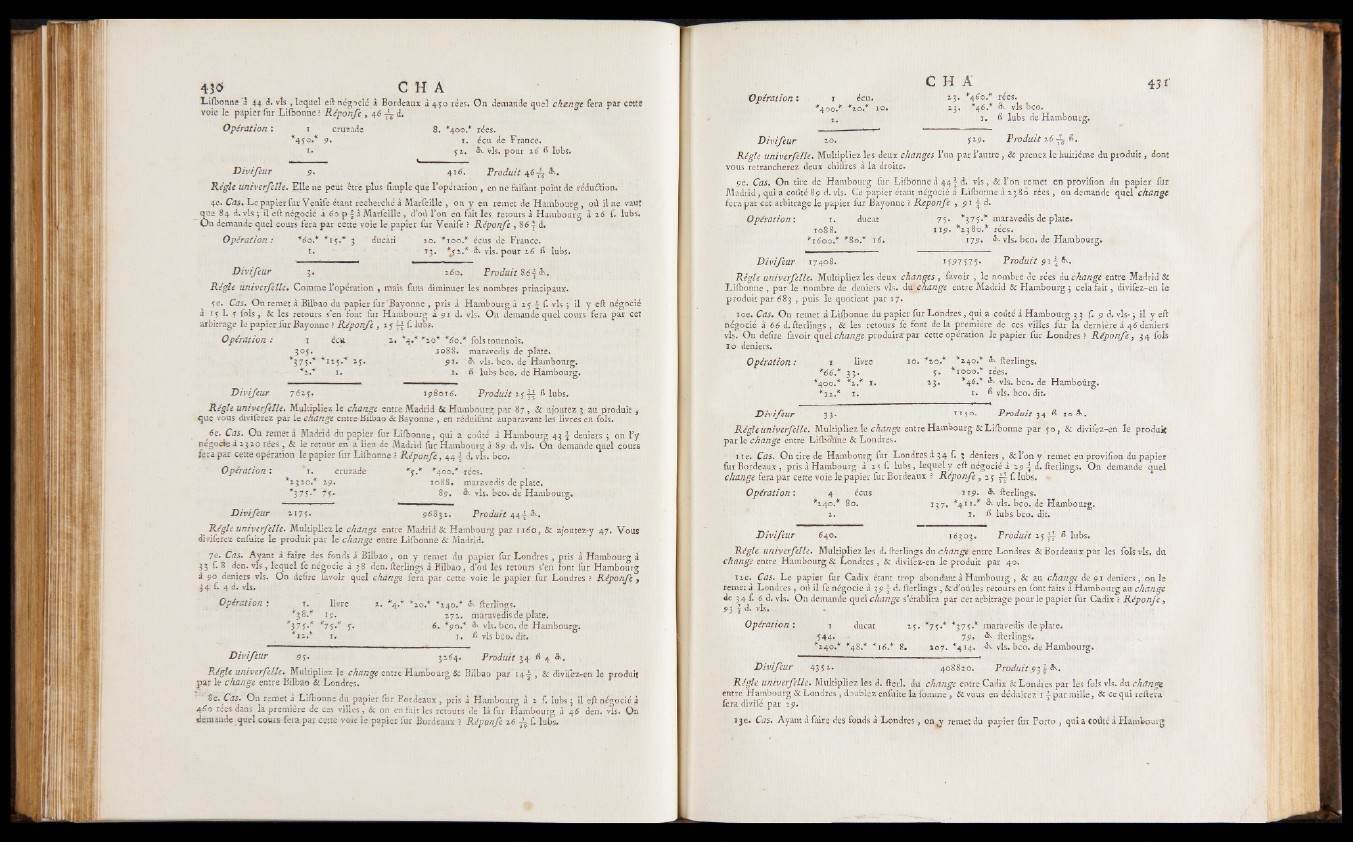 430 C H A
Lisbonne à 44 d. vls, lequel est négocié à Bordeaux à 450 rées. On demande quel change fera par cette
voie le papier sur Lisbonne ? Réponse, 46 d.
Opération : 1 cruzade 8. *400.* rées.
*450.* 9. 1. écu de France.
1. 52. ₰. vls. pour 26 ß lubs.
Diviseur 9. 416. Produit 46 ₰.
Régle universelle. Elle ne peut être plus simple que l'opération, en ne faisant point de réduction.
4e. Cas. Le papier sur Venise étant recherché à Marseille, on y en remet de Hambourg, où il ne vaut
que 84 d. vls ; il est négocié à 60 p à Marseille, d'où l'on en fait les retours à Hambourg à 26 s. lubs.
On demande quel cours sera par cette voie le papier sur Venise ? Réponse, 86 d.
Opération : *60.* *15.* 3 ducati 20. *100.* écus de France.
1. 13. *52.* ₰ vls. pour 26 ß lubs.
Diviseur 3. 260. Produit 86 ₰.
Régle universelle. Comme l'opération, mais sans diminuer les nombres principaux.
5e. Cas. On remet à Bilbao du papier sur Bayonne, pris à Hambourg à 25 s. vls ; il y est négocié
à 15 l. 5 sols, & les retours s'en font sur Hambourg à 91 d. vls. On demande quel cours sera par cet
arbitrage le papier sur Bayonne ? Réponse, 25 s. lubs.
Opération : 1 écu 2. *4.* *20* *60.* sols tournois.
305. 1088. maravedis de plate.
*375.* *125.* 25. 91. ₰. vls. bco. de Hambourg.
*2.* 1. 1. ß lubs bco. de Hambourg.
Diviseur 7625. 198016. Produit 25 ß lubs.
Régle universelle. Multipliez le change entre Madrid & Hambourg par 87, & ajoutez 3 au produit,
que vous diviserez par le change entre Bilbao & Bayonne, en réduisant auparavant les livres en sols.
6e. Cas. On remet à Madrid du papier sur Lisbonne, qui a coûté à Hambourg 43 deniers ; on l'y
négocie à 2320 rées, & le retour en a lieu de Madrid sur Hambourg à 89 d. vls. On demande quel cours
fera par cette opération le papier sur Lisbonne ? Réponse, 44 d. vls. bco.
Opération : 1. cruzade *5.* *400.* rées.
*2320.* 29. 1088. maravedis de plate.
*375.* 75. 89. ₰ vls. bco. de Hambourg.
Diviseur 2175. 96832. Produit 44 ₰.
Régle universelle. Multipliez le change entre Madrid & Hambourg par 1160, & ajoutez-y 47. Vous
diviserez ensuite le produit par le change entre Lisbonne & Madrid.
7e. Cas. Ayant à faire des fonds à Bilbao, on y remet du papier sur Londres, pris à Hambourg à
33 s. 8 den. vls, lequel se négocie à 38 den. sterlings à Bilbao, d'où les retours s'en font sur Hambourg
à 90 deniers vls. On desire savoir quel change fera par cette voie le papier sur Londres ? Réponse,
34 s. 4 d. vls.
Opération : 1. livre 2. *4.* *20.* *240.* ₰ sterlings.
*38.* 19. 272. maravedis de plate.
*375.* *75.* 5. 6. *90.* ₰. vls. bco. de Hambourg.
*12.* 1. 1. ß vls bco. dit.
Diviseur 95. 3264. Produit 34 ß 4 ₰.
Régle universelle. Multipliez le change entre Hambourg & Bilbao par 14, & divisez-en le produit
par le change entre Bilbao & Londres.
8e. Cas. On remet à Lisbonne du papier sur Bordeaux, pris à Hambourg à 2 s. lubs ; il est négocié à
460 rées dans la premiere de ces villes, & on en fait les retours de là sur Hambourg à 46 den. vls. On
demande quel cours fera par cette voie le papier sur Bordeaux ? Réponse 26 s. lubs.
C H A 431
Opération : 1 écu. 23. *460.* rées.
*400.* *20.* 10. 23. *46.* ₰. vls bco.
2. 1. ß lubs de Hambourg.
Diviseur 20. 529. Produit 26 ß.
Régle universelle. Multipliez les deux changes l'un par l'autre, & prenez le huitiéme du produit, dont
vous retrancherez deux chiffres à la droite.
9e. Cas. On tire de Hambourg sur Lisbonne à 44 d. vls, & l'on remet en provision du papier sur
Madrid, qui a coûté 89 d. vls. Ce papier étant négocié à Lisbonne à 2380 rées, on demande quel change
fera par cet arbitrage le papier sur Bayonne ? Réponse, 91 d.
Opération : 1. ducat 75. *375.* maravedis de plate.
1088. 119. *2380.* rées.
*1600.* *80.* 16. 179. ₰. vls. bco. de Hambourg.
Diviseur 17408. 1597575. Produit 91 ₰.
Régle universelle. Multipliez les deux changes, savoir, le nombre de rées du change entre Madrid &
Lisbonne, par le nombre de deniers vls. du change entre Madrid & Hambourg ; cela fait, divisez-en le
produit par 683, puis le quotient par 17.
10e. Cas. On remet à Lisbonne du papier sur Londres, qui a coûté à Hambourg 33 s. 9 d. vls. ; il y est
négocié à 66 d. sterlings, & les retours se font de la premiere de ces villes sur la derniere à 46 deniers
vls. On desire savoir quel change produira par cette opération le papier sur Londres ? Réponse, 34 sols
10 deniers.
Opération : 1 livre 10. *20.* *240.* ₰ sterlings.
*66.* 33. 5. *1000.* rées.
*400.* *2.* 1. 23. *46.* ₰ vls. bco. de Hambourg.
*12.* 1. 1. ß vls. bco. dit.
Diviseur 33. 1150. Produit 34 ß 10 ₰.
Régle universelle. Multipliez le change entre Hambourg & Lisbonne par 50, & divisez-en le produit
par le change entre Lisbonne & Londres.
11e. Cas. On tire de Hambourg sur Londres à 34 s. 3 deniers, & l'on y remet en provision du papier
sur Bordeaux, pris à Hambourg à 25 s. lubs, lequel y est négocié à 29 d. sterlings. On demande quel
change fera par cette voie le papier sur Bordeaux ? Réponse, 25 s. lubs.
Opération : 4 écus 119. ₰ sterlings.
*240.* 80. 137. *411.* ₰. vls. bco. de Hambourg.
2. 1. ß lubs bco. dit.
Diviseur 640. 16303. Produit 25 ß lubs.
Régle universelle. Multipliez les d. sterlings du change entre Londres & Bordeaux par les sols vls. du
change entre Hambourg & Londres, & divisez-en le produit par 40.
12e. Cas. Le papier sur Cadix étant trop abondant à Hambourg, & au change de 91 deniers, on le
remet à Londres, où il se négocie à 39 d. sterlings, & d'où les retours en sont faits à Hambourg au change
de 34 s. 6 d. vls. On demande quel change s'établira par cet arbitrage pour le papier sur Cadix ? Réponse,
93 d. vls.
Opération : 1 ducat 25. *75.* *375.* maravedis de plate.
544. 79. ₰ sterlings.
*240.* *48.* *16.* 8. 207. *414. ₰ vls. bco. de Hambourg.
Diviseur 4352. 408820. Produit 93 ₰.
Régle universelle. Multipliez les d. sterl. du change entre Cadix & Londres par les sols vls. du change
entre Hambourg & Londres, doublez ensuite la somme, & vous en déduirez 1 par mille, & ce qui restera
sera divisé par 29.
13e. Cas. Ayant à faire des fonds à Londres, on y remet du papier sur Porto, qui a coûté à Hambourg